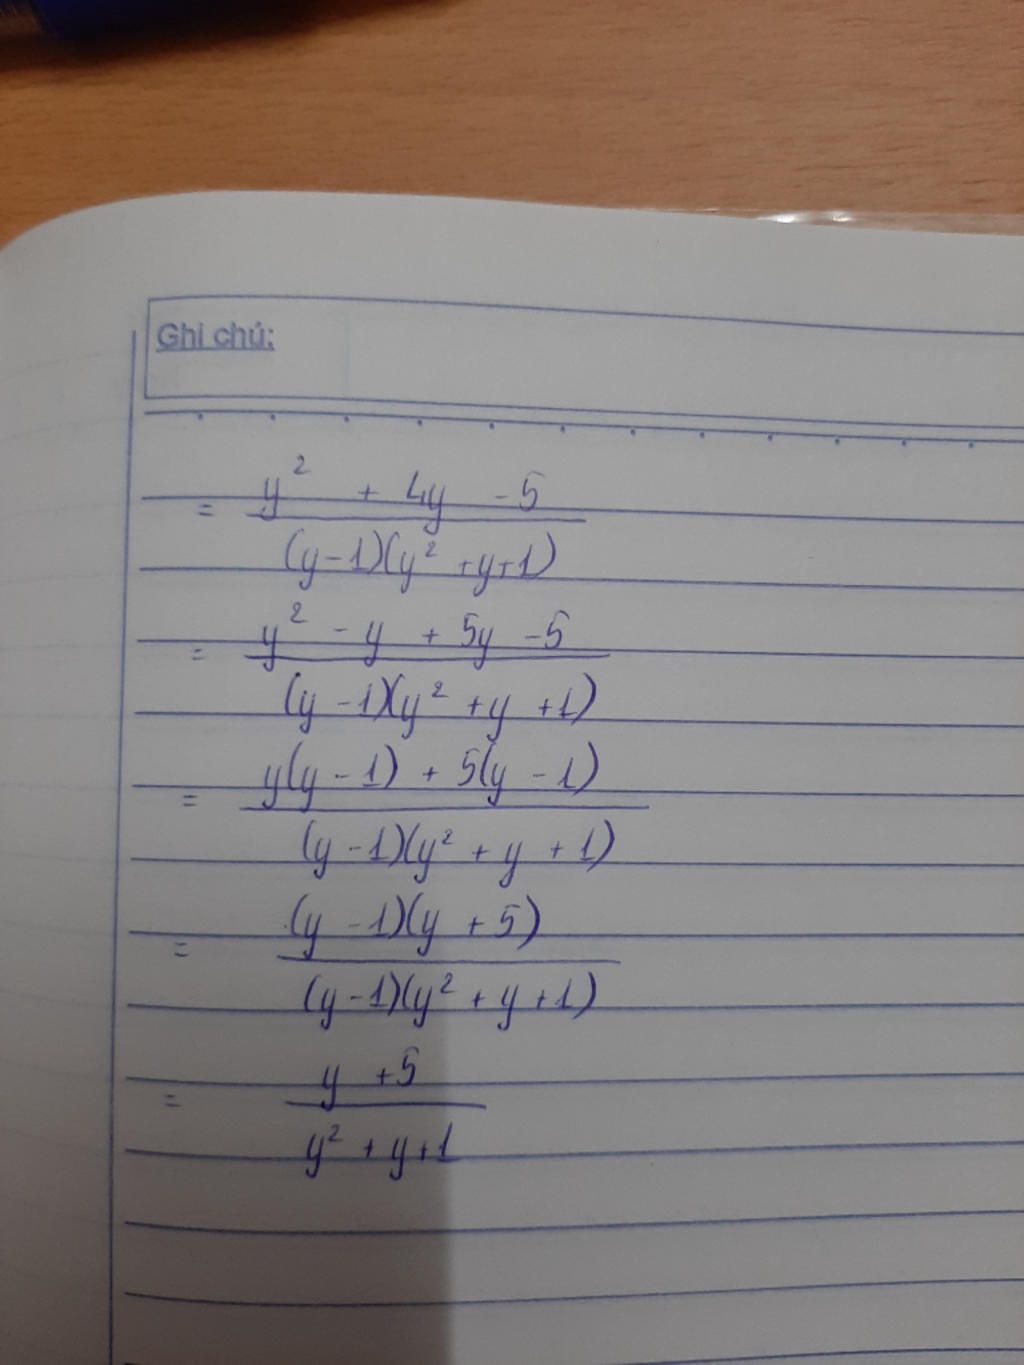 Ghi chú:
= y² + 4y - 5
(y-1)(y² +y+1)
= y² - y + 5y - 5
(y -1)(y² +y +1)
= y(y - 1) + 5(y - 1)
(y -1)(y² + y + 1)
= (y -1)(y + 5)
(y -1)(y² + y +1)
= y +5
y² + y +1